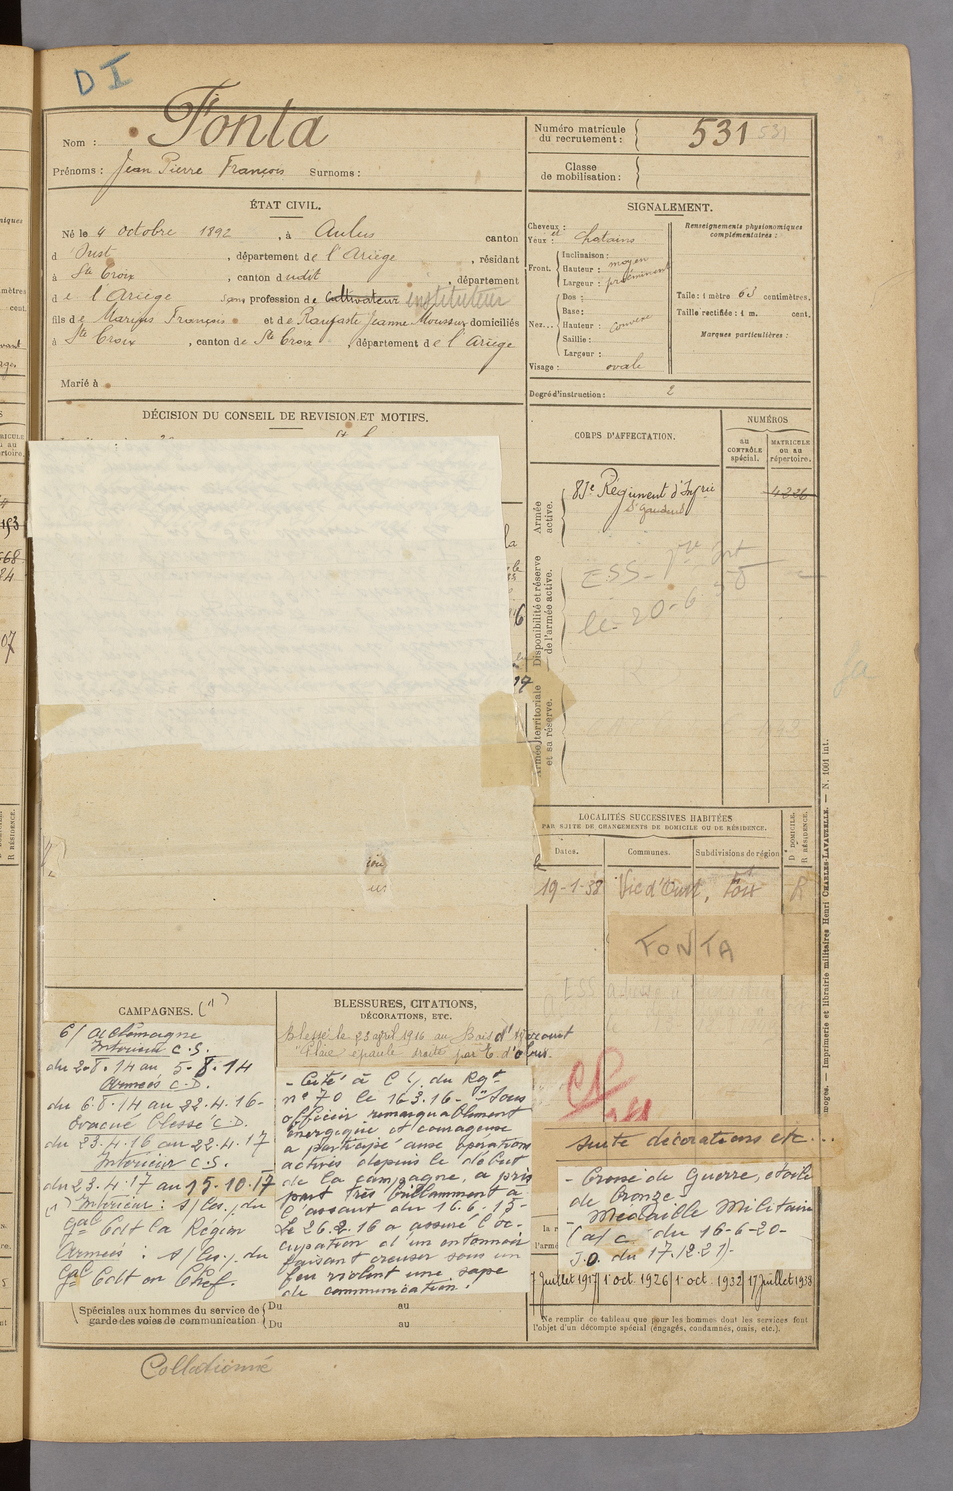 D I
Nom : Fonta
Prénoms : Jean Pierre François Surnoms :
Numéro matricule du recrutement : 531 531
Classe de mobilisation :
ÉTAT CIVIL.
Né le 4 octobre 1892, à Aulus canton
d'Oust, département de l'Ariège, résidant
à Ste Croix, canton dudit, département
de l'Ariège profession de cultivateur instituteur
fils de Marius François et de Raufaste Jeanne domiciliés
à Ste Croix, canton de Ste Croix, département de l'Ariège
Marié à
SIGNALEMENT.
Cheveux :
et
Yeux : chatains
Front. Inclinaison :
Hauteur : moyen
Largeur : proéminent
Nez... Dos :
Base :
Hauteur : convexe
Saillie :
Largeur :
Visage : ovale
Renseignements physionomiques complémentaires :
Taille : 1 mètre 63 centimètres.
Taille rectifiée : 1 m. cent.
Marques particulières :
Degré d'instruction : 2
DÉCISION DU CONSEIL DE REVISION ET MOTIFS.
CORPS D'AFFECTATION.
NUMÉROS
au CONTRÔLE spécial.
MATRICULE ou au répertoire.
Armée active.
83e Régiment d'Infrie
St Gaudens
4226
Disponibilité et réserve de l'armée active.
ESS-
le 20-6 50
Armée territoriale et sa réserve.
LOCALITÉS SUCCESSIVES HABITÉES
PAR SUITE DE CHANGEMENTS DE DOMICILE OU DE RÉSIDENCE.
Dates.
Communes.
Subdivisions de région
D DOMICILE.
R RÉSIDENCE.
19-1-38 Vic d'Oust, Foix R
FONTA
CAMPAGNES. (1)
C/ Allemagne
Intérieur C.S.
du 2.8.14 au 5.8.14
Armées C.D.
du 6.8.14 au 22.4.16-
évacué blessé C.D.
du 23.4.16 au 22.4.17
Intérieur C.S.
du 23.4.17 au 15.10.17
(1) Intérieur : s/les/ du
Gal Cdt la Région
Armées : s/les/ du
Gal Cdt en Chef.
BLESSURES, CITATIONS,
DÉCORATIONS, ETC.
Blessé le 23 avril 1916 au Bois d'Avocourt
"Plaie épaule droite par E. d'obus.
- Cité à l'O/ du Rgt
n° 70 le 16.3.16- "Sous
officier remarquablement
énergique et courageux
a participé aux opérations
actives depuis le début
de la campagne, a pris
part très brillamment à
l'assaut du 16.6.15-
Le 26.2.16 a assuré l'oc-
cupation d'un entonnoir
faisant creuser sous un
feu violent une sape
de communication.
suite décorations etc...
- Croix de Guerre, étoile
de bronze-
- Médaille Militaire
(a/c du 16-6-20-
J.O. du 17.12.21)-
Juillet 1917 1 oct. 1926 1 oct. 1932 17 Juillet 1938
Spéciales aux hommes du service de garde des voies de communication
Du au
Du au
Ne remplir ce tableau que pour les hommes dont les services font l'objet d'un décompte spécial (engagés, condamnés, omis, etc.).
Collationné
Limoges. — Imprimerie et librairie militaires Henri CHARLES-LAVAUZELLE. — N. 1001 int.